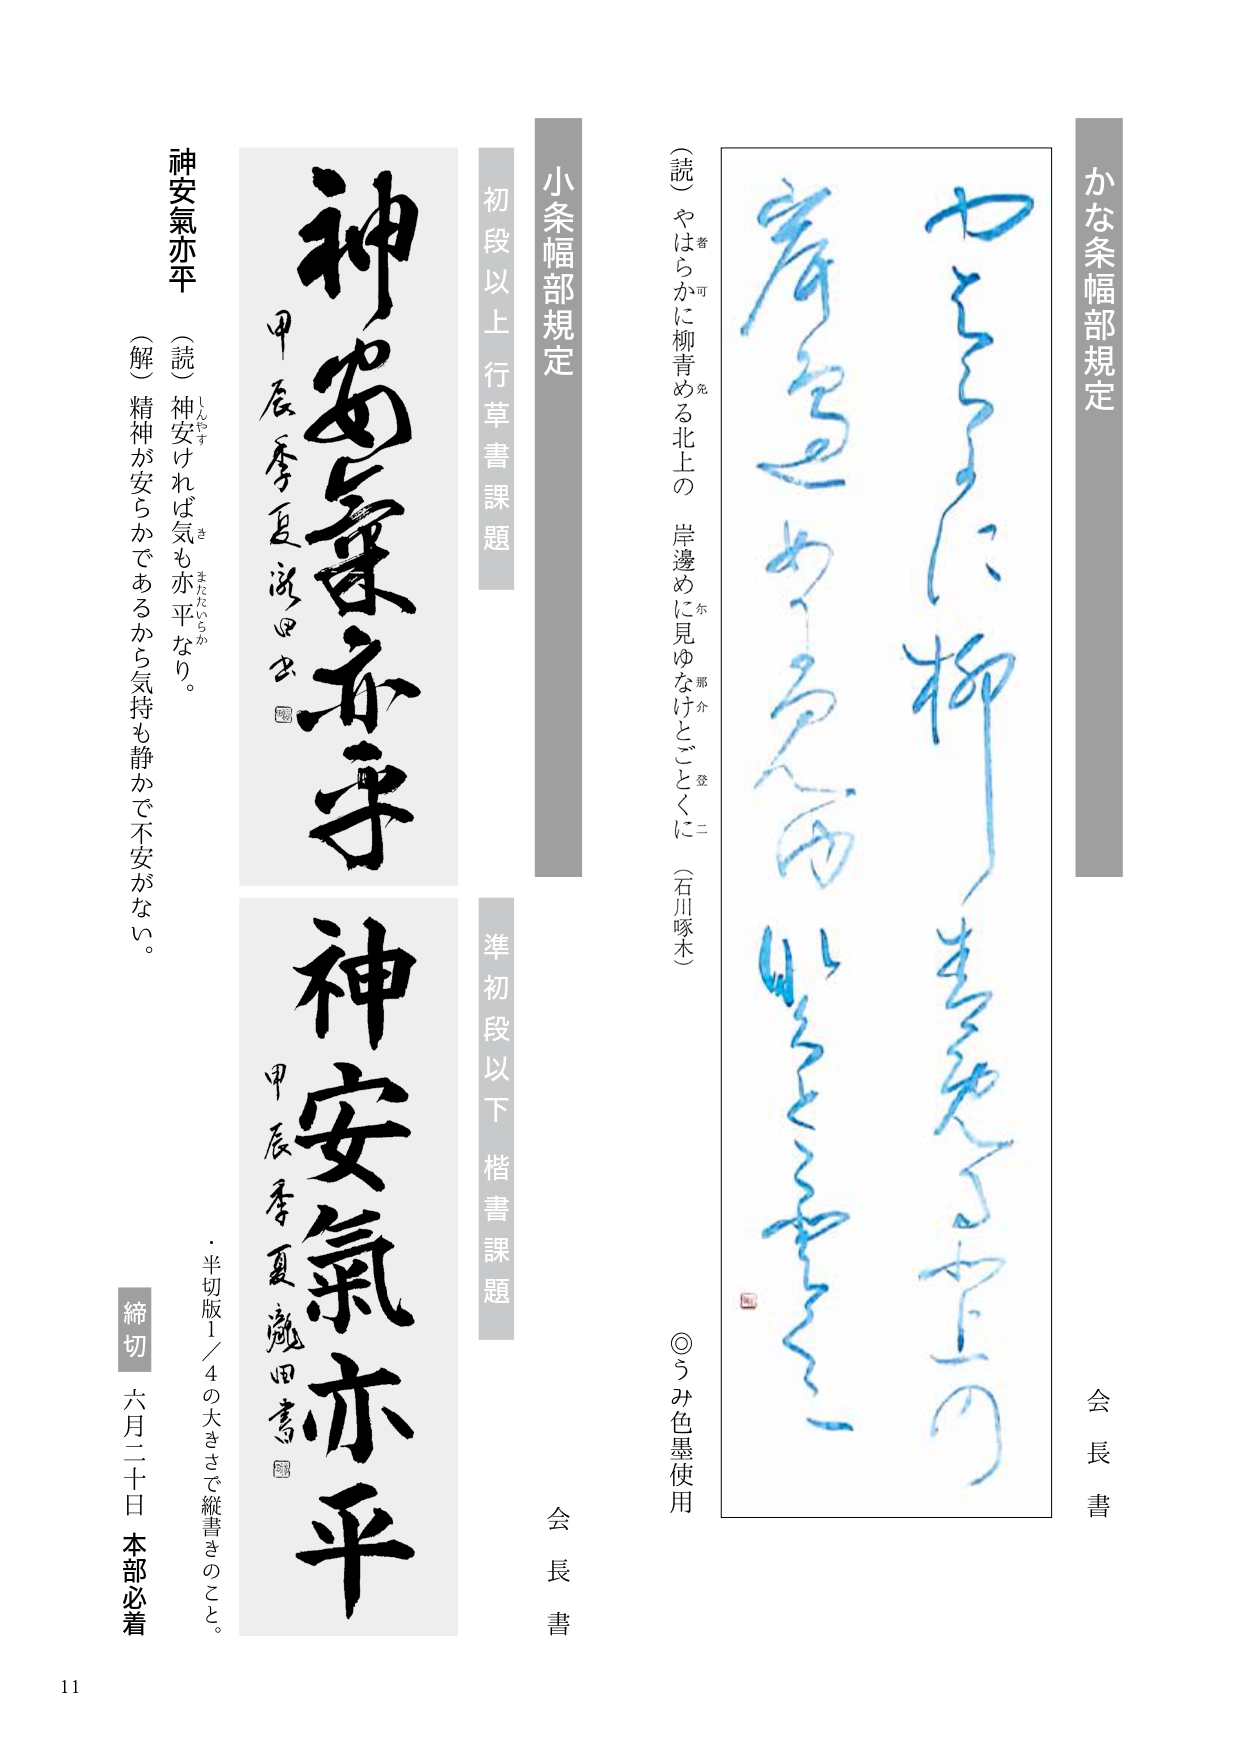 かな条幅部規定
会長書
やはら可に柳青免る北上の
岸邊めに見ゆ那介登ごとくニ
(読) やはらかに柳青める北上の 岸邊めに見ゆなけとごとくに (石川啄木)
者 可 免 尓 那 介 登 ニ
◎うみ色墨使用
小条幅部規定
会長書
初段以上 行草書課題
神安氣亦平
甲辰季夏瀧田書
準初段以下 楷書課題
神安氣亦平
甲辰季夏瀧田書
・半切版1/4の大きさで縦書きのこと。
神安氣亦平
(読) 神安ければ気も亦平なり。
しんやす き またたいらか
(解) 精神が安らかであるから気持も静かで不安がない。
締切 六月二十日 本部必着
11